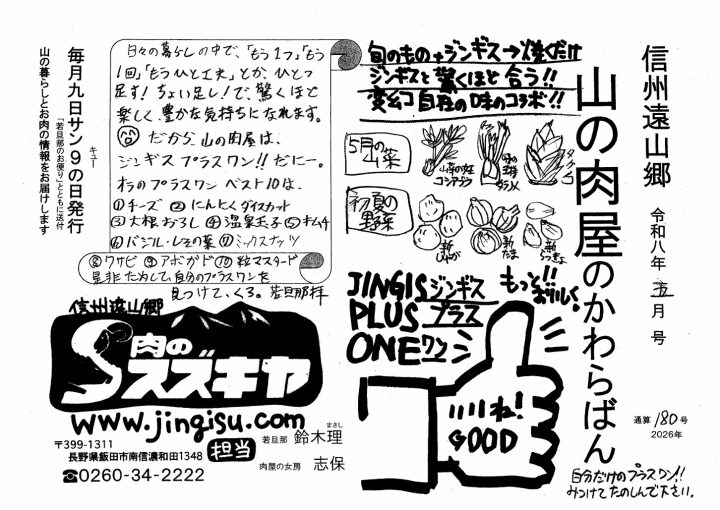 信州遠山郷
山の肉屋のかわらばん
令和八年 五 月 号
通算 180号
2026年
自分だけのプラスワン!!
みつけてたのしんで下さい。
旬のもの+ジンギス→焼くだけ
ジンギスと驚くほど合う!!
変幻自在の味のコラボ!!
5月の
山菜
山菜の女王
コシアブラ
タケノコ
初夏の
野菜
新
じゃが
新
たま
新
らっきょ
もっと!!
おいしく
JINGISジンギス
PLUSプラス
ONEワン
いいね!
GOOD
日々の暮らしの中で、「もう1つ」「もう
1回」「もうひと工夫」とか、ひとつ
足す!ちょい足し!で、驚くほど
楽しく、豊かな気持ちになれます。
だから、山の肉屋は、
ジンギス プラスワン!!だに〜。
オラのプラスワン ベスト10は、
①チーズ ②にんたくダイスカット
③大根おろし ④温泉玉子 ⑤キムチ
⑥バジル・レモの葉 ⑦ミックスナッツ
⑧ワサビ ⑨アボガド ⑩粒マスタード
是非ためして、自分のプラスワンを
見つけて、くろ。若旦那拝
毎月九日サン9の日発行
キュー
「若旦那のお便り」とともに送付
山の暮らしとお肉の情報をお届けします
信州遠山郷
肉の
スズキヤ
www.jingisu.com
〒399-1311
長野県飯田市南信濃和田1348
☎0260-34-2222
担当
若旦那 鈴木理
まさし
肉屋の女房 志保